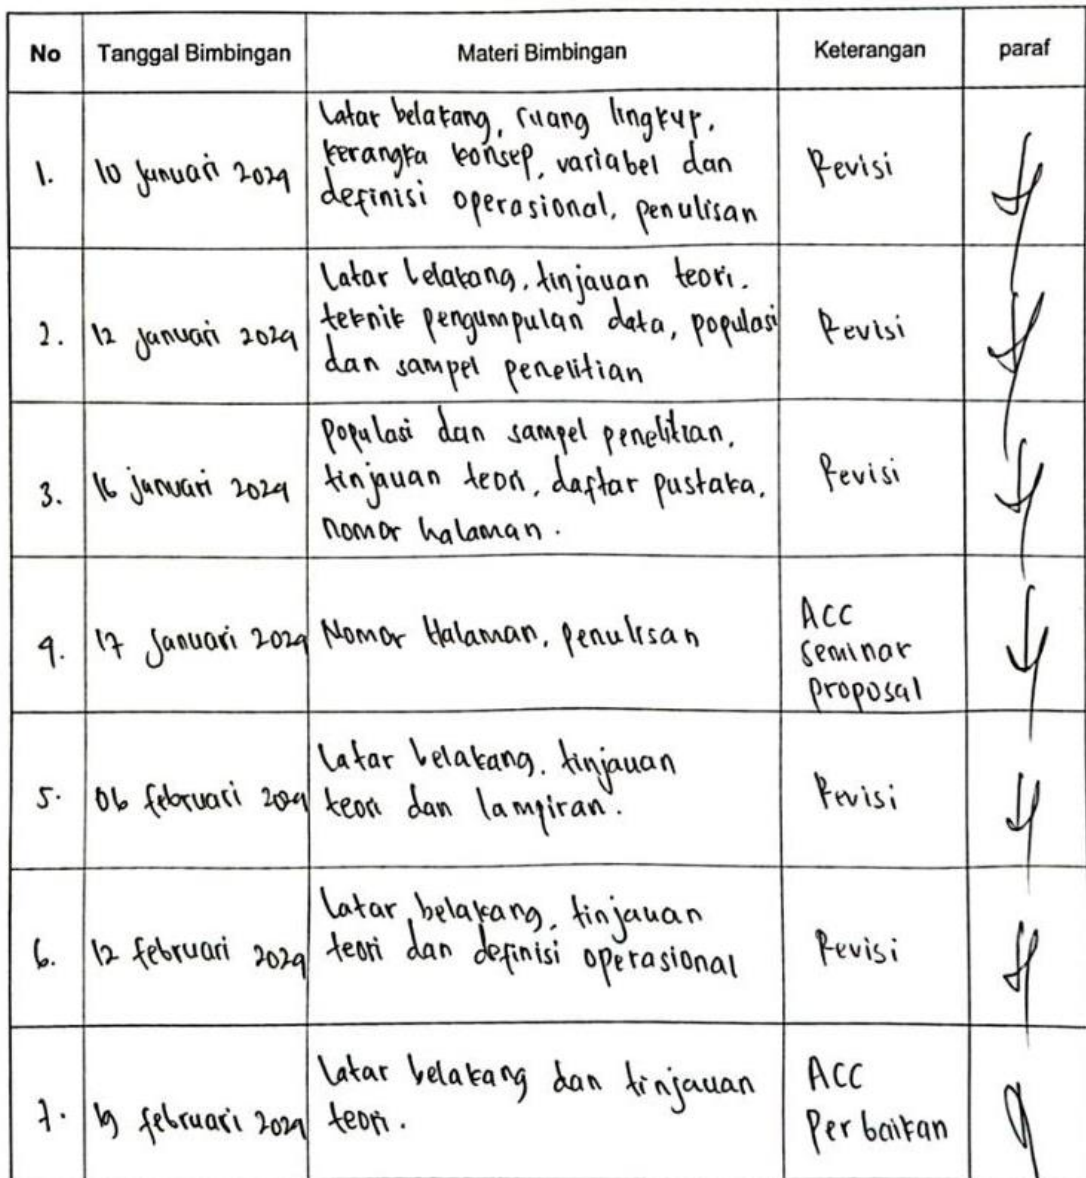 No Tanggal Bimbingan Materi Bimbingan Keterangan paraf
1. 10 Januari 2024 Latar belakang, ruang lingkup, Revisi
kerangka konsep, variabel dan
definisi operasional, penulisan
2. 12 Januari 2024 Latar belakang, tinjauan teori, Revisi
teknik pengumpulan data, populasi
dan sampel penelitian
3. 16 Januari 2024 populasi dan sampel penelitian, Revisi
tinjauan teori, daftar pustaka,
nomor halaman.
4. 17 Januari 2024 Nomor Halaman, penulisan ACC
seminar
proposal
5. 06 februari 2024 Latar belakang, tinjauan Revisi
teori dan lampiran.
6. 12 februari 2024 Latar belakang, tinjauan Revisi
teori dan definisi operasional
7. 19 februari 2024 Latar belakang dan tinjauan ACC
teori. Perbaikan